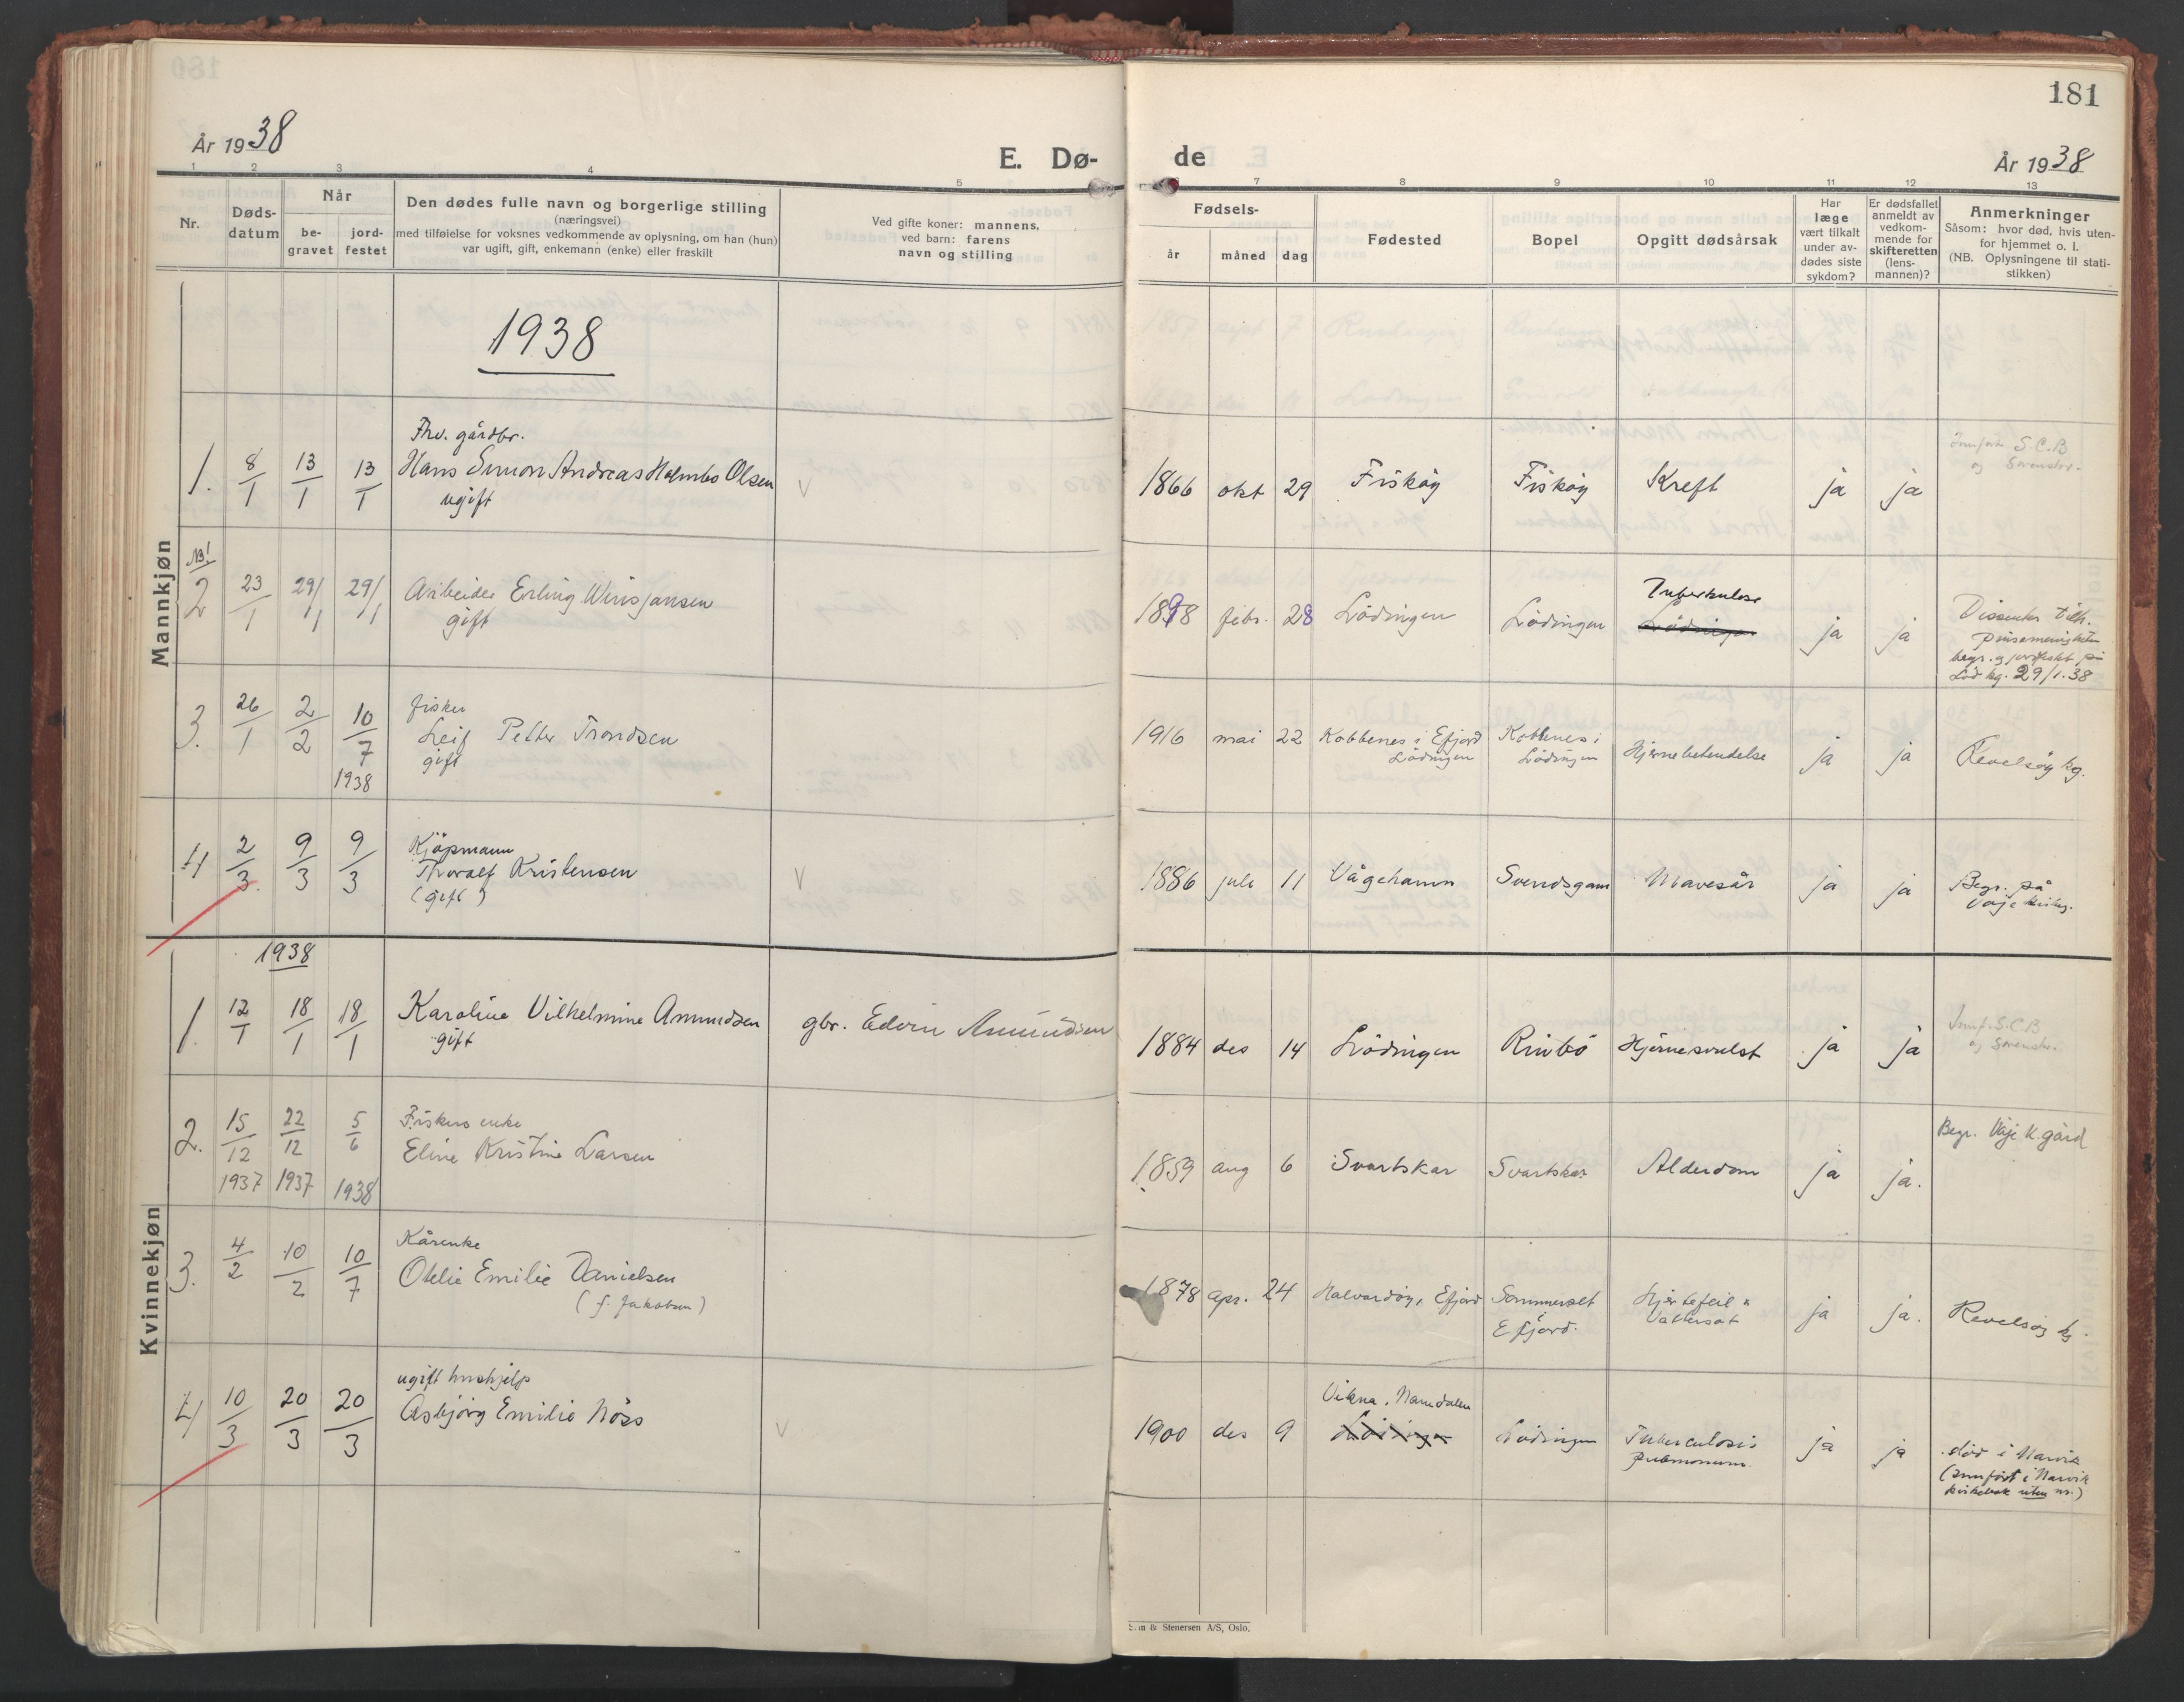 181
År 1938
E. Dø-
de
År 1938
1 2 3 4 5 7 8 9 10 11 12 13
Nr.
Døds-
datum
Når
be-
gravet
jord-
festet
Den dødes fulle navn og borgerlige stilling
(næringsvei)
med tilføielse for voksnes vedkommende av oplysning, om han (hun)
var ugift, gift, enkemann (enke) eller fraskilt
Ved gifte koner: mannens,
ved barn: farens
navn og stilling
Fødsels-
år måned dag
Fødested
Bopel
Opgitt dødsårsak
Har
læge
vært tilkalt
under av-
dødes siste
sykdom?
Er dødsfallet
anmeldt av
vedkom-
mende for
skifteretten
(lens-
mannen)?
Anmerkninger
Såsom: hvor død, hvis uten-
for hjemmet o. l.
(NB. Oplysningene til stati-
stikken)
1938
Mannkjøn
Fhv. gårdbr.
1. 8/1 13/1 13/1 Hans Simon Andreas Holmbo Olsen V 1866 okt 29 Fiskøy Fiskøy Kreft ja ja
ugift
S.C.B
og
NB!
2 23/1 29/1 29/1 Arbeider Erling Winsjansen 1898 febr. 28 Lödingen Lödingen Tuberkulose ja ja
gift
Lödingen
Dissenter tilh.
pinsemenigheten
begr. og jordfestet på
Löd kg. 29/1.38
fisker
3. 26/1 2/2 10/7 1938 Leif Petter Trondsen 1916 mai 22 Kobbenes i Efjord Kobbenes i Hjernebetendelse ja ja Revelsøy kg.
gift
Lödingen Lödingen
Kjöpmann
4 2/3. 9/3 9/3 Thoralf Kristensen V 1886 juli 11 Vågehamn Svendsgam Mavesår ja ja Begr. på
(gift)
Våje kirkeg.
1938
Kvinnekjøn
1. 12/1 18/1 18/1 Karoline Vilhelmine Amundsen gbr. Edvin Amundsen 1884 des 14 Lödingen Rinbö Hjernesvulst ja ja
gift
Innf. S.C.B
og
Fiskers enke
2. 15/12 1937 22/12 1937 5/6 1938 Eline Kristine Larsen 1859 aug 6 Svartskar Svartskar Alderdom ja ja.
Begr. Våje k.gård
Kårenke
3. 4/2 10/2 10/7 Otelie Emilie Danielsen 1878 apr. 24 Halvardöy, Efjord Sommerset Hjertefeil & ja ja. Revelsøy kg.
(f. Jakobsen)
Efjord. Vattersot
ugift hushjelp
4 10/3 20/3 20/3 Asbjörg Emilie Nöss V 1900 des 9 Vikna, Namdalen Lödingen Tuberculosis ja ja
Lödingen
pulmonum.
död i Narvik
(innfört i Narvik
kirkebok uten nr.)
& Stenersen A/S, Oslo.